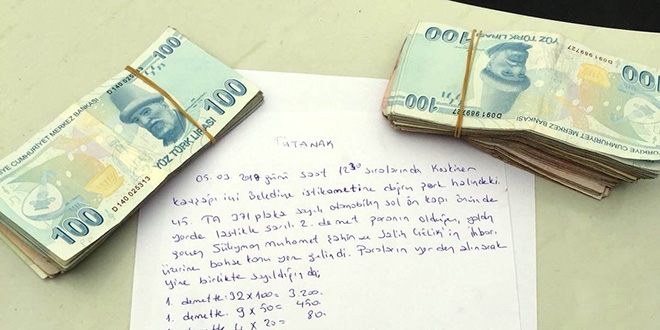 100
D140 025313
E CUMHURİYET MERKEZ BANKASI
YÜZ TÜRK LİRASI
100
D140 025313
100
YÜZ TÜRK LİRASI
D091 989727
100
100
D091 989727
TÜRKİYE CUMHURİYET MERKEZ BANKASI
TUTANAK
05.03.2018 günü saat 1230 sıralarında Keskiner
kavşağı içi Belediye istikametine doğru park halindeki
45. TA 371 plaka sayılı otomobilin sol ön kapı önünde
yerde lastikle sarılı 2. demet paranın olduğu, yoldan
geçen Süleyman Muhamet Şahin ve Salih 'in ihbarı
üzerine bahse konu yere gelindi. Paraların yerden alınarak
yine birlikte sayıldığında;
1. demette: 32x100= 3.200.
1. demette: 9 x 50 = 450.
4 x 20 = 80.